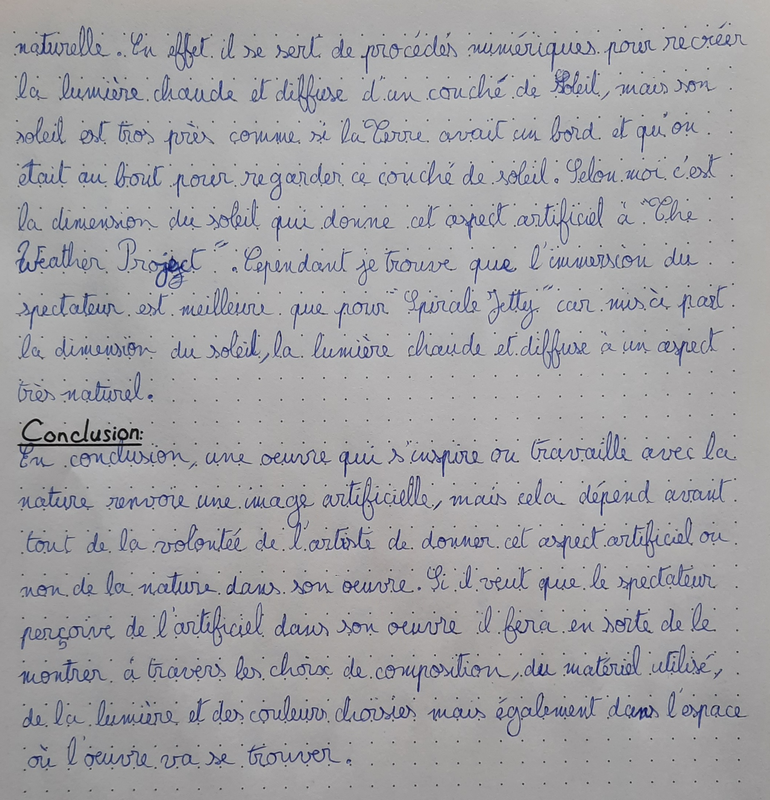 naturelle. En effet il se sert de procédés numériques pour recréer
la lumière chaude et diffuse d'un couché de Soleil, mais son
soleil est tros près comme si la Terre avait un bord et qu'on
était au bout pour regarder ce couché de soleil. Selon moi c'est
la dimension du soleil qui donne cet aspect artificiel à "The
Weather Project". Cependant je trouve que l'immersion du
spectateur est meilleure que pour "Spirale Jetty" car mis à part
la dimension du soleil, la lumière chaude et diffuse à un aspect
très naturel.
Conclusion:
En conclusion, une oeuvre qui s'inspire ou travaille avec la
nature renvoie une image artificielle, mais cela dépend avant
tout de la volontée de l'artiste de donner cet aspect artificiel ou
non de la nature dans son oeuvre. Si il veut que le spectateur
perçoive de l'artificiel dans son oeuvre il fera en sorte de le
montrer à travers les choix de composition, du matériel utilisé,
de la lumière et des couleurs choisies mais également dans l'espace
où l'oeuvre va se trouver.